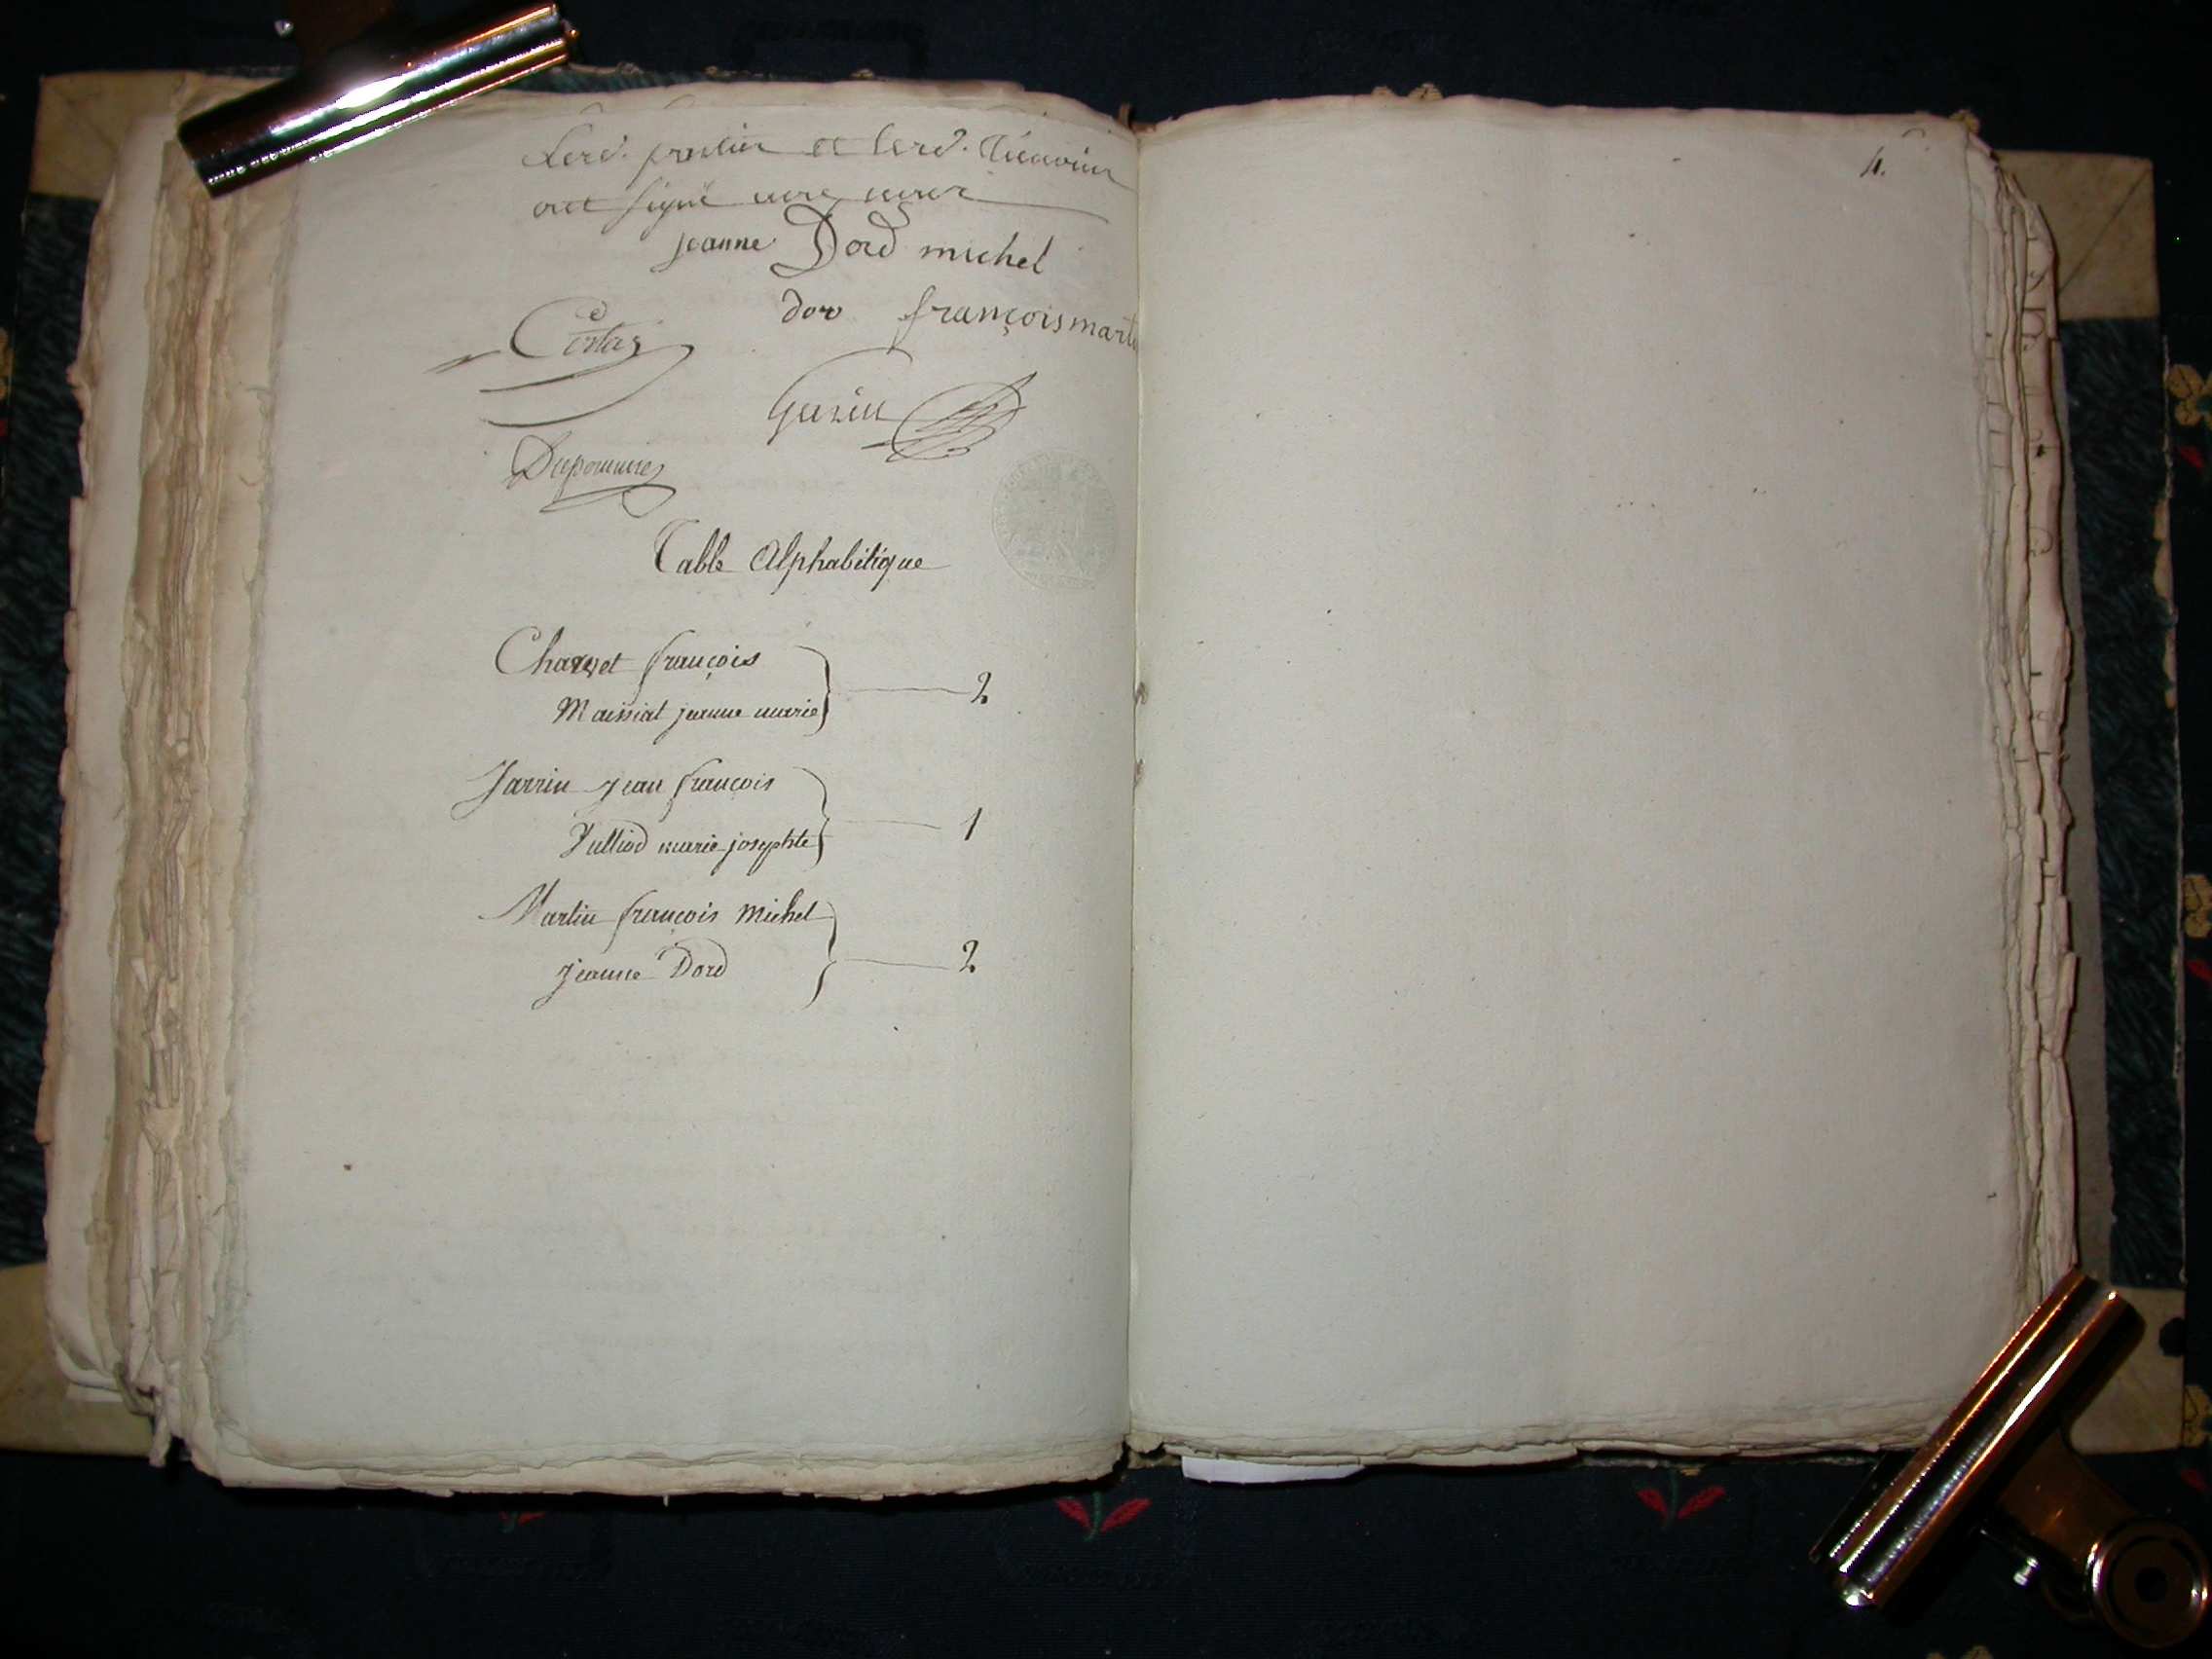 Les d. parties et les d. témoins
ont signé avec nous
jeanne Dord michel
dor françois marti
Costaz
Garin
Duponnne
Table Alphabétique
Charvet françois
Maissiat jeanne marie 2
Jarrin jean françois
Julliod marie josephte 1
Martin françois Michel
jeanne Dord 2
4.